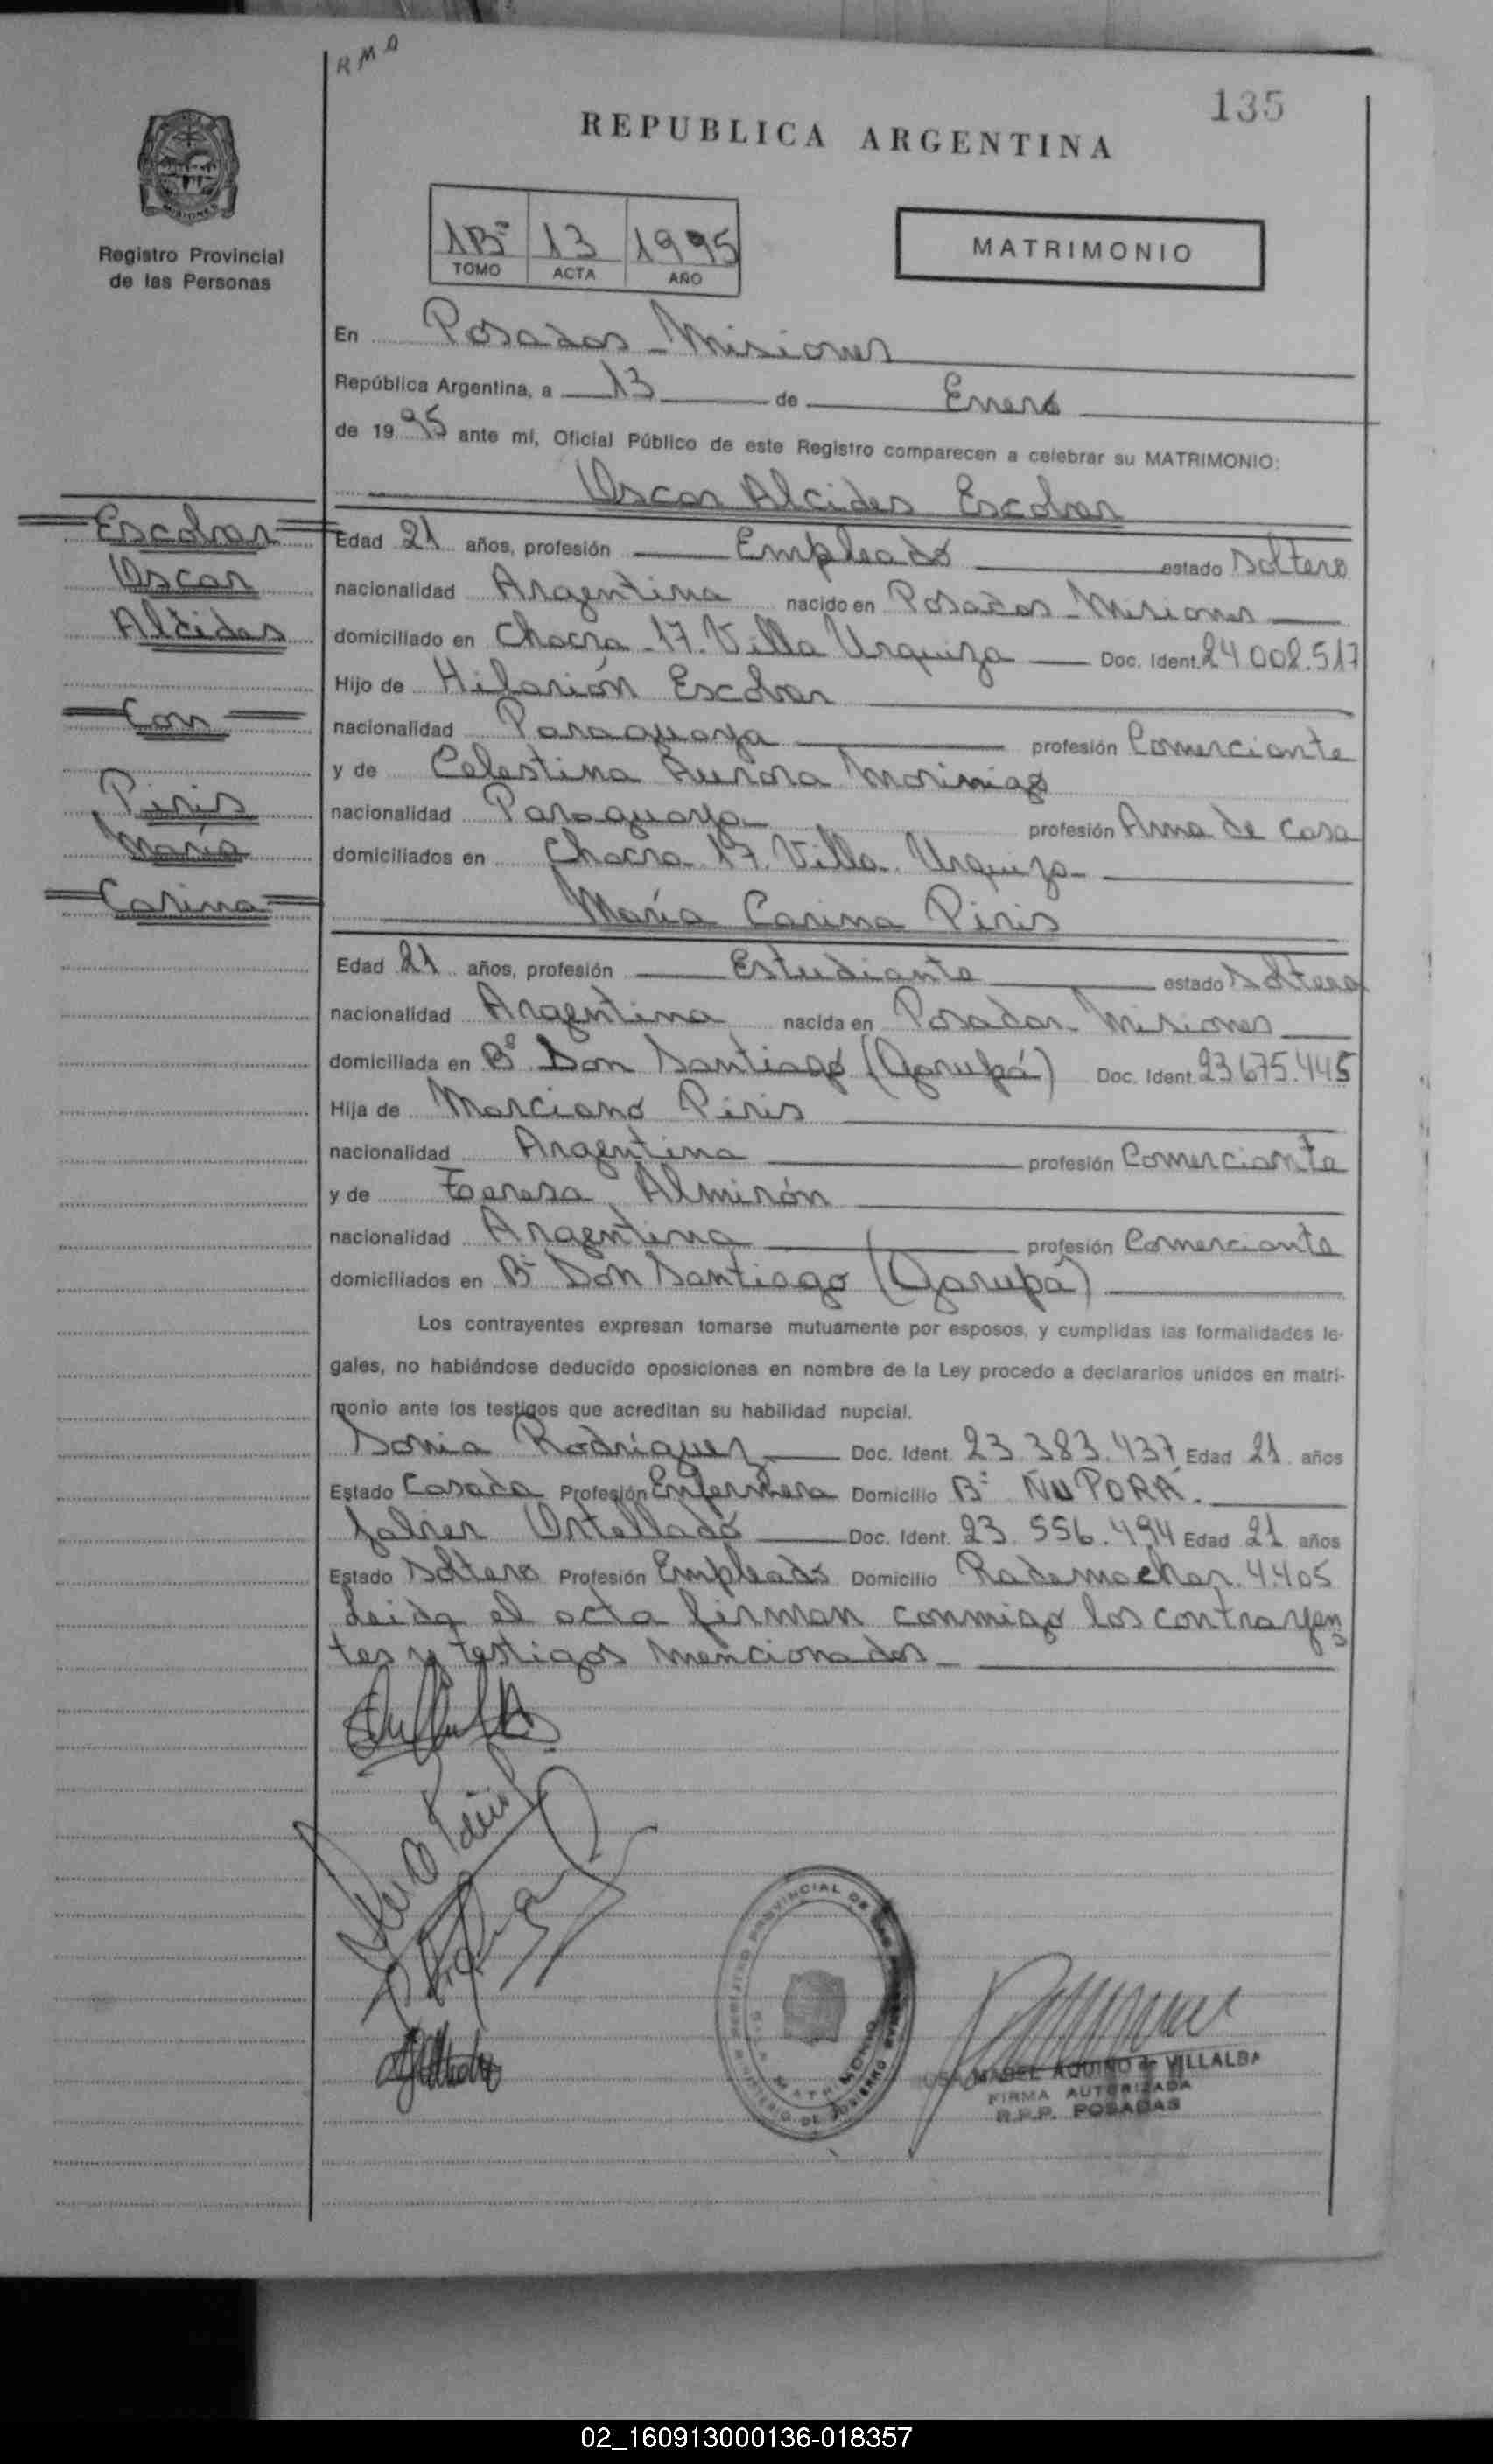 RMA
135
REPUBLICA ARGENTINA
MISIONES
Registro Provincial
de las Personas
1Bº 13 1995
TOMO ACTA AÑO
MATRIMONIO
En Posadas - Misiones
República Argentina, a 13 de Enero
de 1995 ante mí, Oficial Público de este Registro comparecen a celebrar su MATRIMONIO:
Oscar Alcides Escobar
Escobar
Oscar
Alcides
Con
Piris
María
Carina
Edad 21 años, profesión Empleado estado Soltero
nacionalidad Argentina nacido en Posadas - Misiones
domiciliado en Chacra 17. Villa Urquiza Doc. Ident. 24.002.517
Hijo de Hilarión Escobar
nacionalidad Paraguaya profesión Comerciante
y de Celestina Aurora Morinigo
nacionalidad Paraguaya profesión Ama de Casa
domiciliados en Chacra 17. Villa Urquiza
María Carina Piris
Edad 21 años, profesión Estudiante estado Soltera
nacionalidad Argentina nacida en Posadas - Misiones
domiciliada en Bº Don Santiago (Garupá) Doc. Ident. 23.675.445
Hija de Marciano Piris
nacionalidad Argentina profesión Comerciante
y de Teresa Almirón
nacionalidad Argentina profesión Comerciante
domiciliados en Bº Don Santiago (Garupá)
Los contrayentes expresan tomarse mutuamente por esposos, y cumplidas las formalidades le-
gales, no habiéndose deducido oposiciones en nombre de la Ley procedo a declararlos unidos en matri-
monio ante los testigos que acreditan su habilidad nupcial.
Sonia Rodríguez Doc. Ident. 23.383.437 Edad 21 años
Estado Casada Profesión Enfermera Domicilio Bº ÑU PORÁ.
Javier Ortellado Doc. Ident. 23.556.494 Edad 21 años
Estado Soltero Profesión Empleado Domicilio Rademacher 4.405
Leida el acta firman conmigo los contrayen
tes y testigos mencionados
MATRIMONIO
MABEL AQUINO de VILLALBA
FIRMA AUTORIZADA
R.P.P. POSADAS
02_160913000136-018357